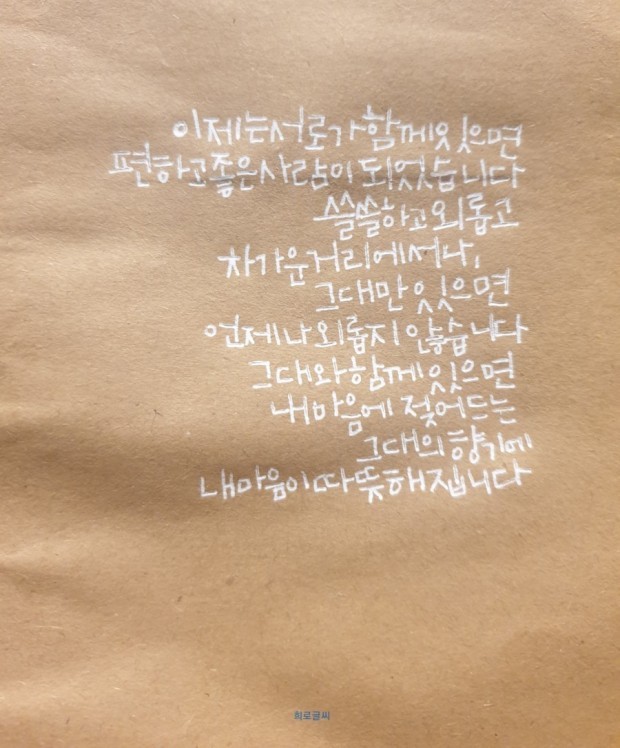 이제는서로가함께있으면
편하고좋은사람이되었습니다
쓸쓸하고외롭고
차가운거리에서나,
그대만있으면
언제나외롭지않습니다
그대와함께있으면
내마음에젖어드는
그대의향기에
내마음이따뜻해집니다
희로글씨